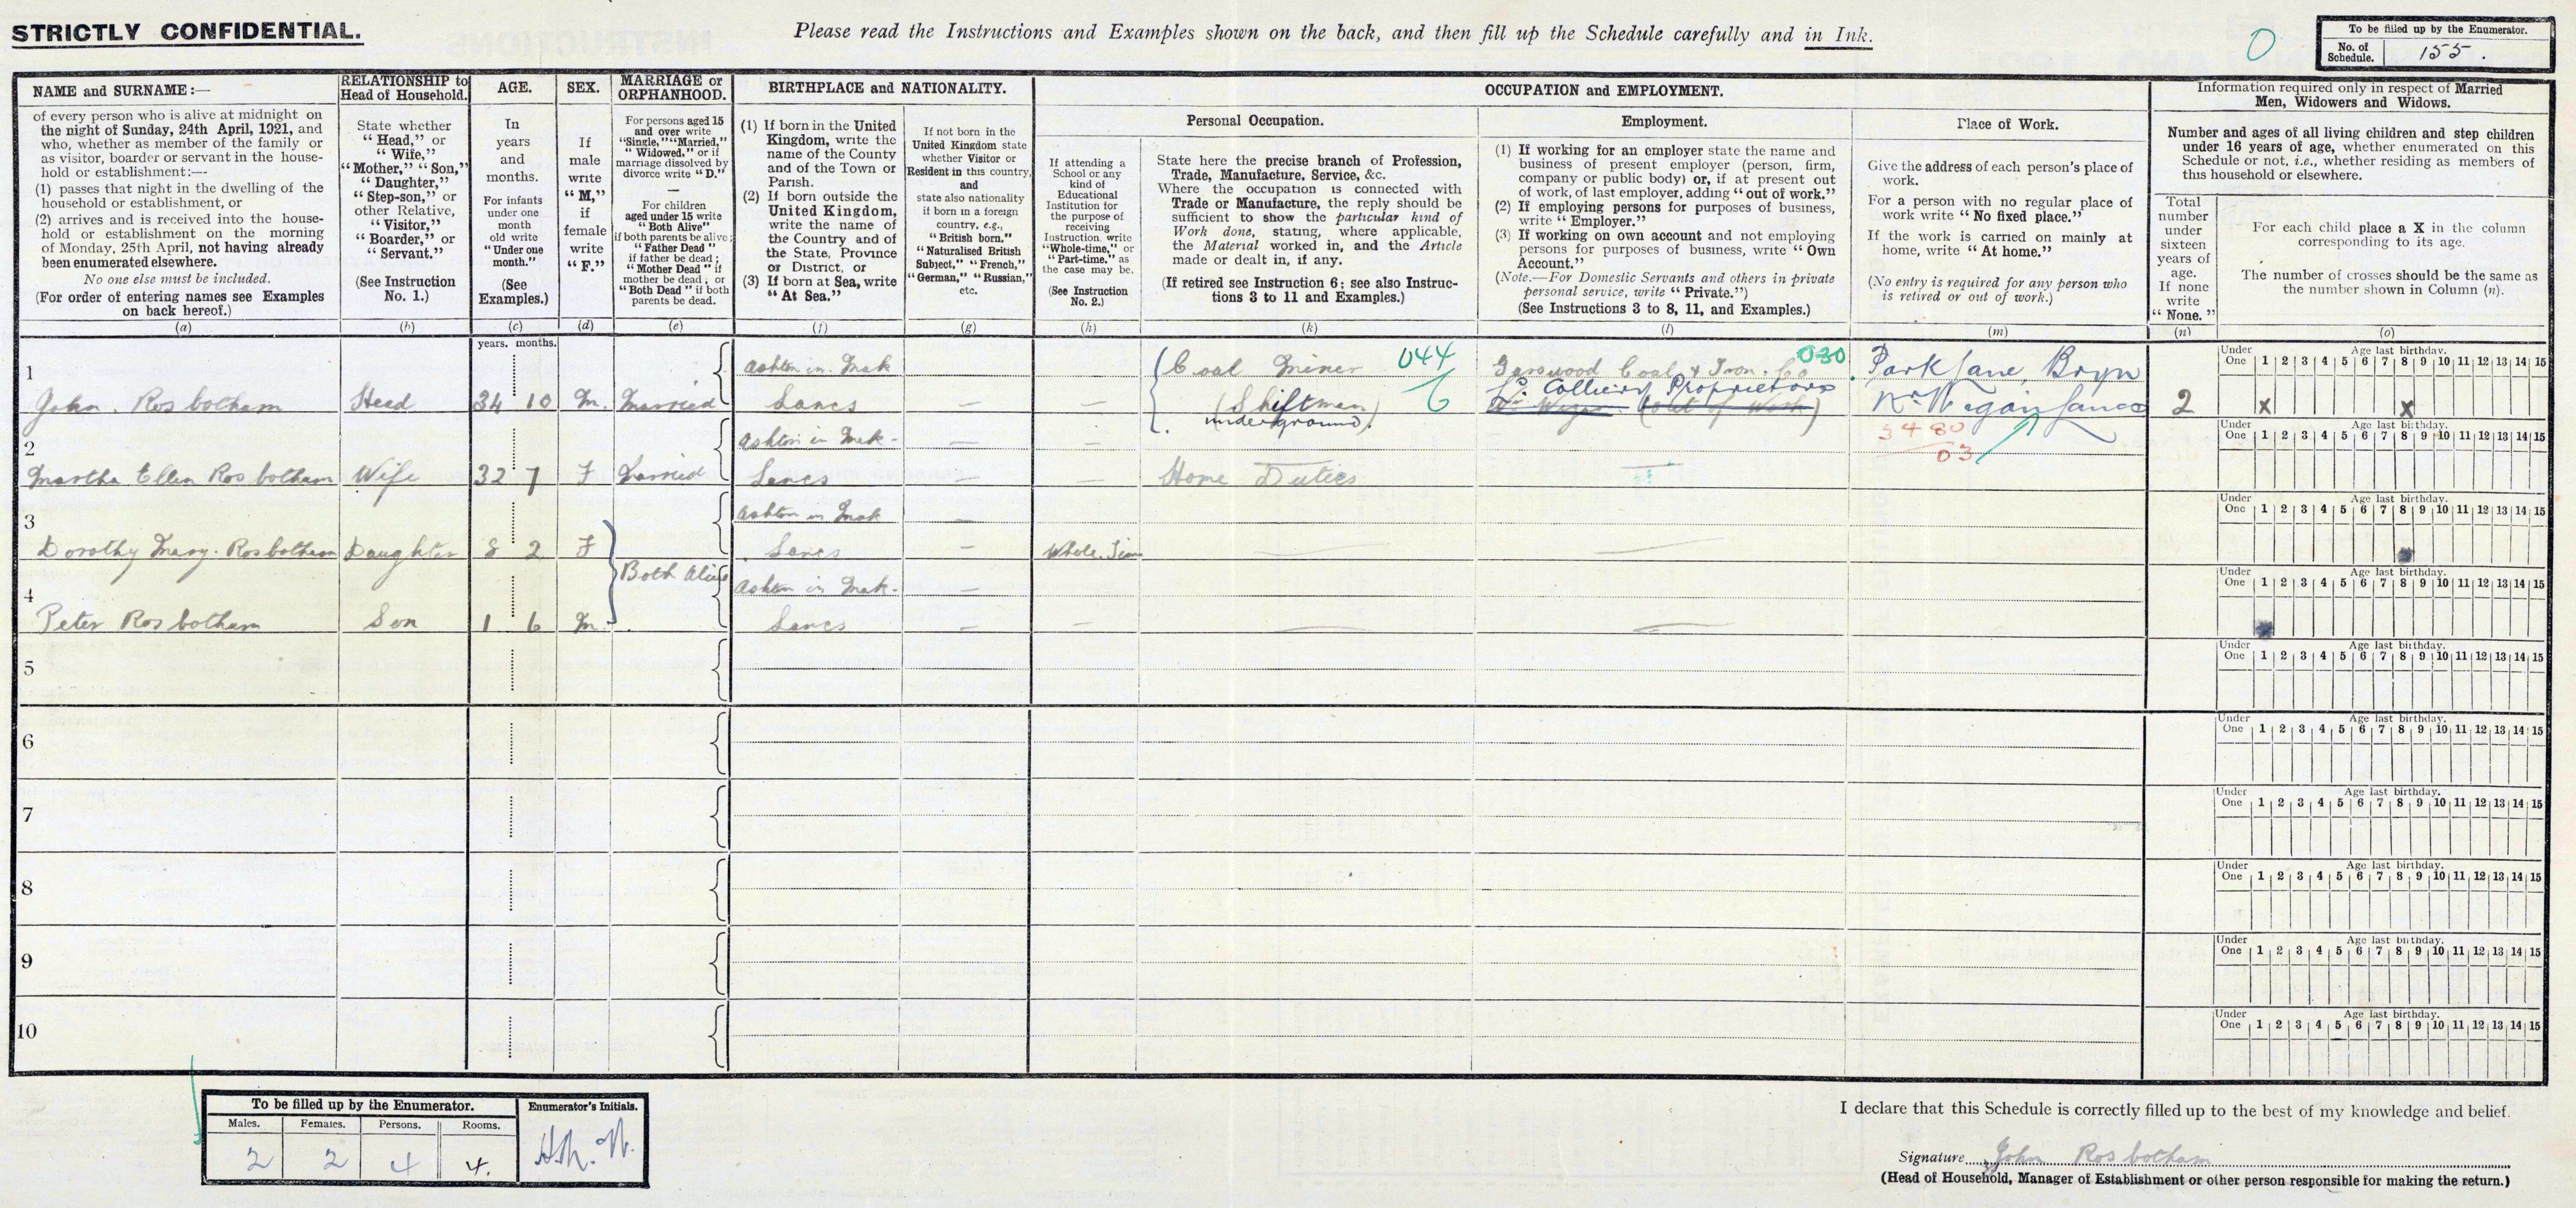 STRICTLY CONFIDENTIAL.
Please read the Instructions and Examples shown on the back, and then fill up the Schedule carefully and in Ink.
0
To be filled up by the Enumerator.
No. of Schedule. 155.
NAME and SURNAME:—
of every person who is alive at midnight on
the night of Sunday, 24th April, 1921, and
who, whether as member of the family or
as visitor, boarder or servant in the house-
hold or establishment:—
(1) passes that night in the dwelling of the
household or establishment, or
(2) arrives and is received into the house-
hold or establishment on the morning
of Monday, 25th April, not having already
been enumerated elsewhere.
No one else must be included.
(For order of entering names see Examples
on back hereof.)
(a)
RELATIONSHIP to
Head of Household.
State whether
"Head," or
"Wife,"
"Mother," "Son,"
"Daughter,"
"Step-son," or
other Relative,
"Visitor,"
"Boarder," or
"Servant."
(See Instruction
No. 1.)
(b)
AGE.
In
years
and
months.
For infants
under one
month
old write
"Under one
month."
(See
Examples.)
(c)
SEX.
If
male
write
"M,"
if
female
write
"F."
(d)
MARRIAGE or
ORPHANHOOD.
For persons aged 15
and over write
"Single," "Married,"
"Widowed," or if
marriage dissolved by
divorce write "D."
—
For children
aged under 15 write
"Both Alive"
if both parents be alive;
"Father Dead"
if father be dead;
"Mother Dead" if
mother be dead; or
"Both Dead" if both
parents be dead.
(e)
BIRTHPLACE and NATIONALITY.
(1) If born in the United
Kingdom, write the
name of the County
and of the Town or
Parish.
(2) If born outside the
United Kingdom,
write the name of
the Country and of
the State, Province
or District, or
(3) If born at Sea, write
"At Sea."
(f)
If not born in the
United Kingdom state
whether Visitor or
Resident in this country,
and
state also nationality
if born in a foreign
country, e.g.,
"British born,"
"Naturalised British
Subject," "French,"
"German," "Russian,"
etc.
(g)
OCCUPATION and EMPLOYMENT.
Personal Occupation.
If attending a
School or any
kind of
Educational
Institution for
the purpose of
receiving
Instruction, write
"Whole-time," or
"Part-time," as
the case may be.
(See Instruction
No. 2.)
(h)
State here the precise branch of Profession,
Trade, Manufacture, Service, &c.
Where the occupation is connected with
Trade or Manufacture, the reply should be
sufficient to show the particular kind of
Work done, stating, where applicable,
the Material worked in, and the Article
made or dealt in, if any.
(If retired see Instruction 6; see also Instruc-
tions 3 to 11 and Examples.)
(k)
Employment.
(1) If working for an employer state the name and
business of present employer (person, firm,
company or public body) or, if at present out
of work, of last employer, adding "out of work."
(2) If employing persons for purposes of business,
write "Employer."
(3) If working on own account and not employing
persons for purposes of business, write "Own
Account."
(Note.—For Domestic Servants and others in private
personal service, write "Private.")
(See Instructions 3 to 8, 11, and Examples.)
(l)
Place of Work.
Give the address of each person's place of
work.
For a person with no regular place of
work write "No fixed place."
If the work is carried on mainly at
home, write "At home."
(No entry is required for any person who
is retired or out of work.)
(m)
Information required only in respect of Married
Men, Widowers and Widows.
Number and ages of all living children and step children
under 16 years of age, whether enumerated on this
Schedule or not, i.e., whether residing as members of
this household or elsewhere.
Total
number
under
sixteen
years of
age.
If none
write
"None."
(n)
For each child place a X in the column
corresponding to its age.
The number of crosses should be the same as
the number shown in Column (n).
(o)
years. months.
1
John. Rosbotham Head 34 10 M. Married
Ashton in Mak
Lancs — —
Coal Miner 044
(Shiftman 6
underground).
Garswood Coal & Iron. Co 030
Ld Colliery Proprietors
Nr Wigan. (Out of Work)
Park Lane, Bryn
Nr Wigan Lancs
3480
03
2 x x
Under One Age last birthday. 1 2 3 4 5 6 7 8 9 10 11 12 13 14 15
2
Martha Ellen Rosbotham Wife 32 7 F Married
Ashton in Mak- — —
Lancs — —
Home Duties
Under One Age last birthday. 1 2 3 4 5 6 7 8 9 10 11 12 13 14 15
3
Dorothy Mary. Rosbotham Daughter 8 2 F
Ashton in Mak —
Lancs — Whole. Time
Both Alive
Under One Age last birthday. 1 2 3 4 5 6 7 8 9 10 11 12 13 14 15
4
Peter Rosbotham Son 1 6 M.
Ashton in Mak- —
Lancs — —
Under One Age last birthday. 1 2 3 4 5 6 7 8 9 10 11 12 13 14 15
5
Under One Age last birthday. 1 2 3 4 5 6 7 8 9 10 11 12 13 14 15
6
Under One Age last birthday. 1 2 3 4 5 6 7 8 9 10 11 12 13 14 15
7
Under One Age last birthday. 1 2 3 4 5 6 7 8 9 10 11 12 13 14 15
8
Under One Age last birthday. 1 2 3 4 5 6 7 8 9 10 11 12 13 14 15
9
Under One Age last birthday. 1 2 3 4 5 6 7 8 9 10 11 12 13 14 15
10
Under One Age last birthday. 1 2 3 4 5 6 7 8 9 10 11 12 13 14 15
To be filled up by the Enumerator.
Males. Females. Persons. Rooms.
2 2 4 4.
Enumerator's Initials.
I declare that this Schedule is correctly filled up to the best of my knowledge and belief.
Signature John Rosbotham
(Head of Household, Manager of Establishment or other person responsible for making the return.)